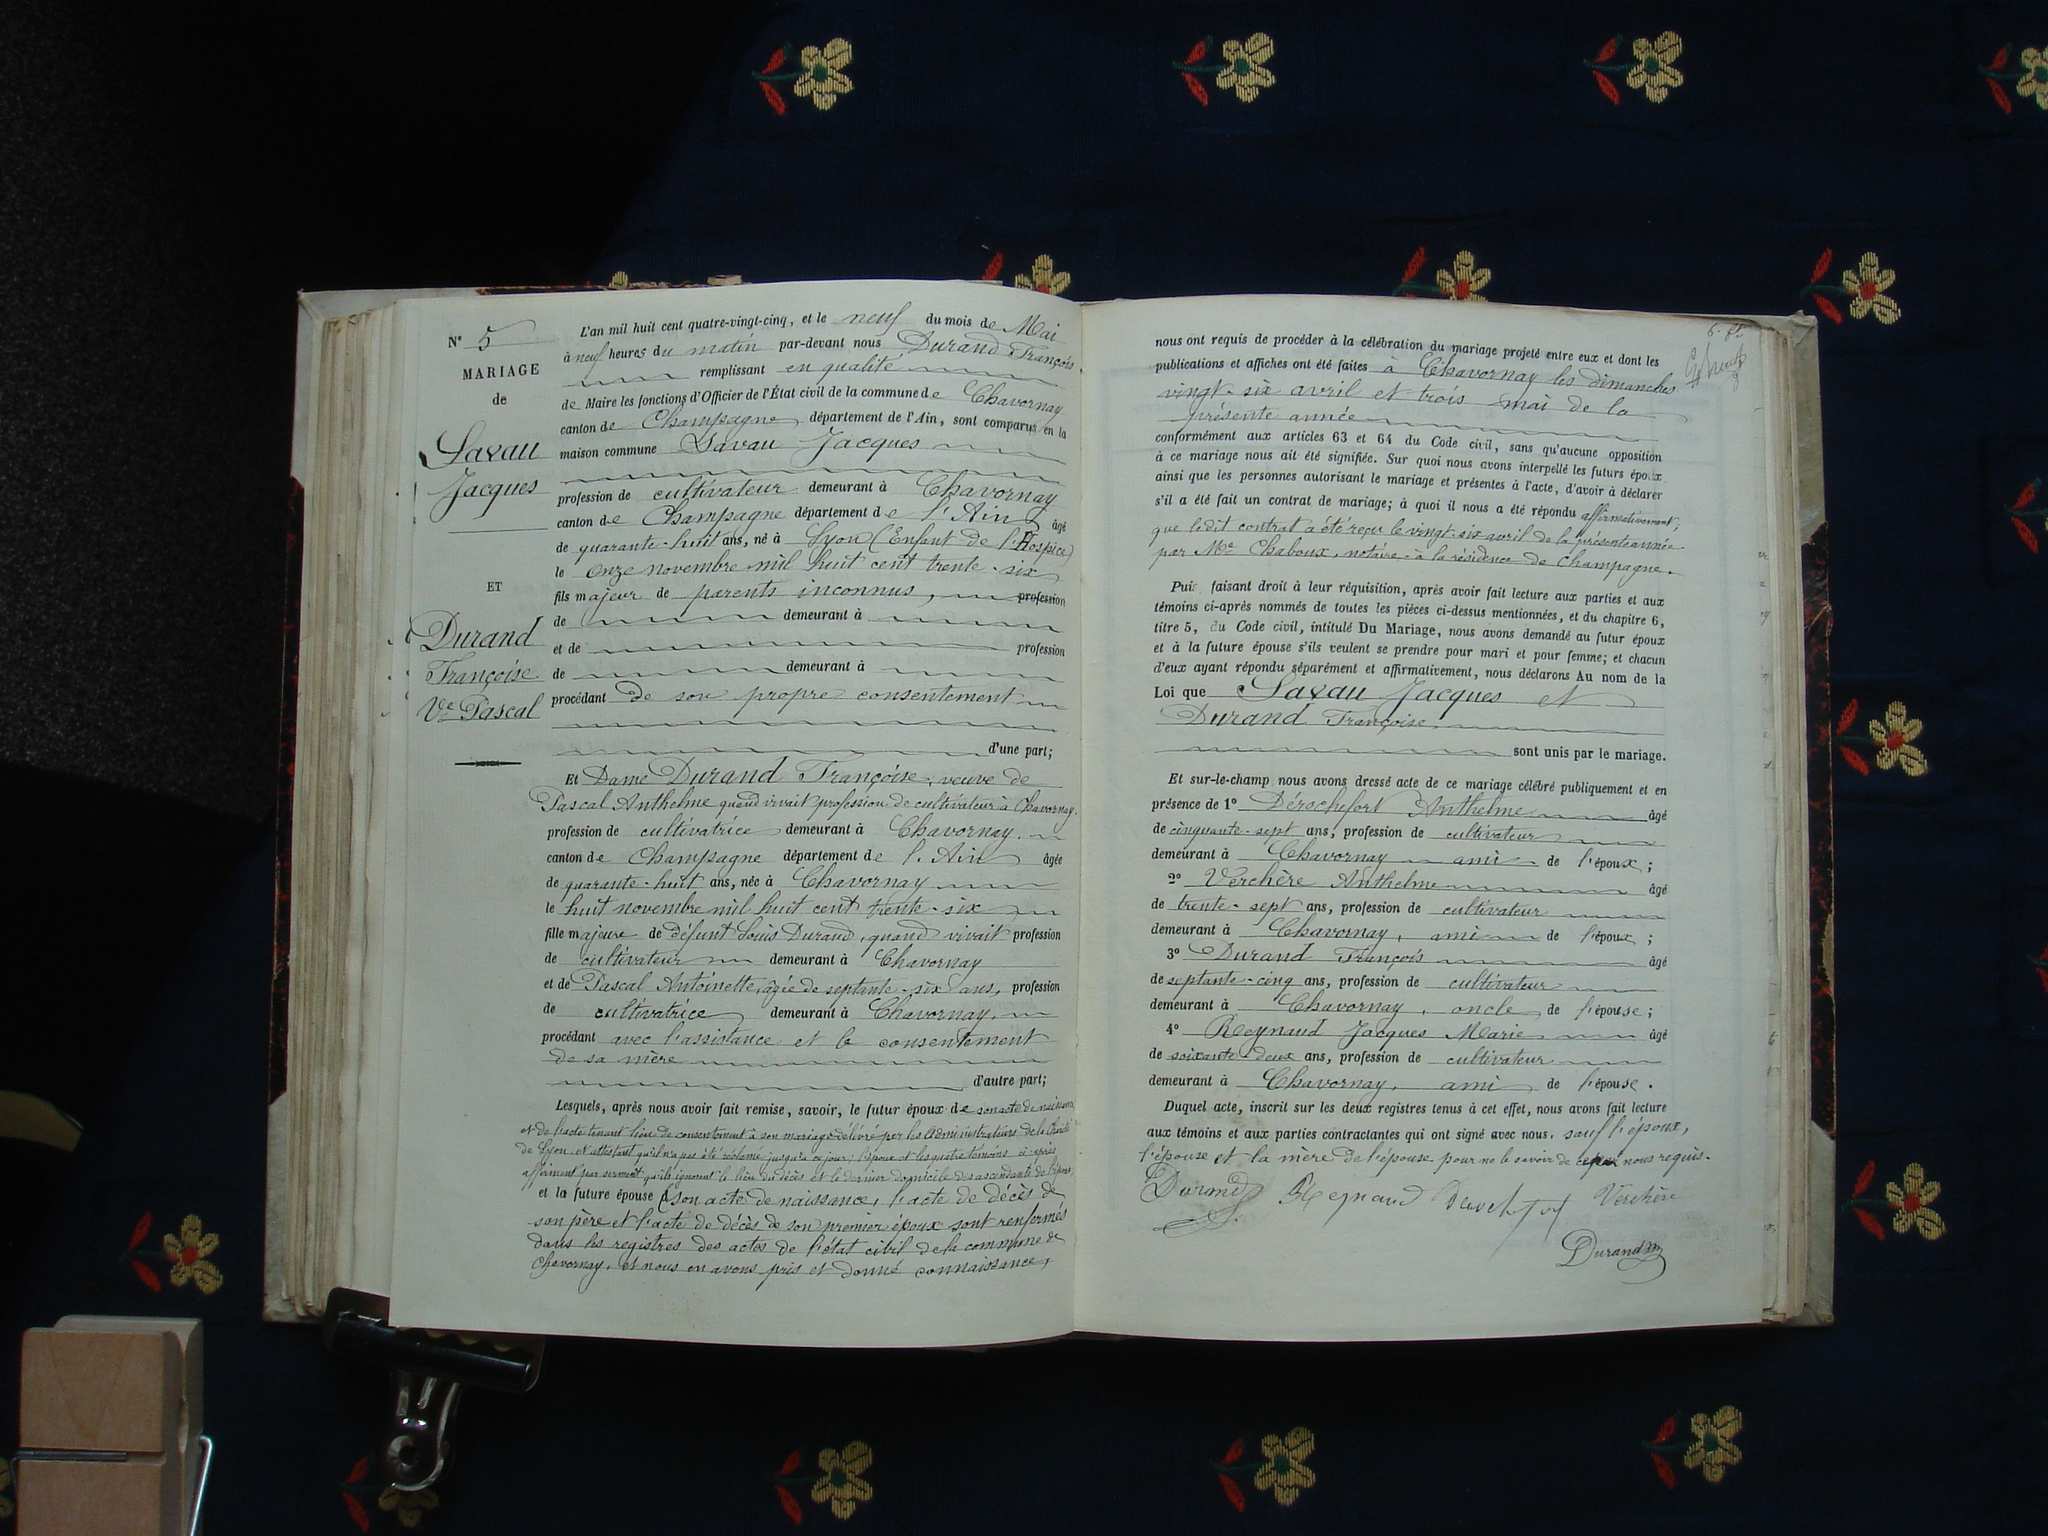 N° 5
MARIAGE
de
Lavau
Jacques
ET
Durand
Françoise
Ve Pascal
L'an mil huit cent quatre-vingt-cinq, et le neuf du mois de Mai
à neuf heures du matin par-devant nous Durand François
remplissant en qualité
de Maire les fonctions d'Officier de l'État civil de la commune de Chavornay
canton de Champagne département de l'Ain, sont comparus en la
maison commune Lavau Jacques
profession de cultivateur demeurant à Chavornay
canton de Champagne département de l'Ain âgé
de quarante-huit ans, né à Lyon (Enfant de l'Hospice)
le onze novembre mil huit cent trente-six
fils majeur de parents inconnus, profession
de demeurant à
et de profession
de demeurant à
procédant de son propre consentement
d'une part;
Et Dame Durand Françoise, veuve de
Pascal Anthelme quand vivait profession de cultivateur à Chavornay.
profession de cultivatrice demeurant à Chavornay.
canton de Champagne département de l'Ain âgée
de quarante-huit ans, née à Chavornay
le huit novembre mil huit cent trente-six
fille majeure de défunt Louis Durand, quand vivait profession
de cultivateur demeurant à Chavornay
et de Pascal Antoinette, âgée de septante-six ans, profession
de cultivatrice demeurant à Chavornay.
procédant avec l'assistance et le consentement
de sa mère
d'autre part;
Lesquels, après nous avoir fait remise, savoir, le futur époux de son acte de naissance
et de l'acte tenant lieu de consentement à son mariage délivré par les Administrateurs de la Charité
de Lyon et attestant qu'il n'a pas été réclamé jusqu'à ce jour; l'époux et les quatre témoins ci-après
affirment par serment qu'ils ignorent le lieu du décès et le dernier domicile des ascendants de l'époux,
et la future épouse (son acte de naissance, l'acte de décès de
son père et l'acte de décès de son premier époux sont renfermés
dans les registres des actes de l'état civil de la commune de
Chavornay, et nous en avons pris et donné connaissance,
nous ont requis de procéder à la célébration du mariage projeté entre eux et dont les
publications et affiches ont été faites à Chavornay les dimanches
vingt-six avril et trois mai de la
présente année
conformément aux articles 63 et 64 du Code civil, sans qu'aucune opposition
à ce mariage nous ait été signifiée. Sur quoi nous avons interpellé les futurs époux
ainsi que les personnes autorisant le mariage et présentes à l'acte, d'avoir à déclarer
s'il a été fait un contrat de mariage; à quoi il nous a été répondu affirmativement;
que ledit contrat a été reçu le vingt-six avril de la présente année
par Me Chaboux, notaire à la résidence de Champagne.
Puis faisant droit à leur réquisition, après avoir fait lecture aux parties et aux
témoins ci-après nommés de toutes les pièces ci-dessus mentionnées, et du chapitre 6,
titre 5, du Code civil, intitulé Du Mariage, nous avons demandé au futur époux
et à la future épouse s'ils veulent se prendre pour mari et pour femme; et chacun
d'eux ayant répondu séparément et affirmativement, nous déclarons Au nom de la
Loi que Lavau Jacques et
Durand Françoise
sont unis par le mariage.
Et sur-le-champ nous avons dressé acte de ce mariage célébré publiquement et en
présence de 1° Dérochefort Anthelme âgé
de cinquante-sept ans, profession de cultivateur
demeurant à Chavornay ami de l'époux;
2° Verchère Anthelme âgé
de trente-sept ans, profession de cultivateur
demeurant à Chavornay, ami de l'époux;
3° Durand François âgé
de septante-cinq ans, profession de cultivateur
demeurant à Chavornay, oncle de l'épouse;
4° Reynaud Jacques Marie âgé
de soixante-deux ans, profession de cultivateur
demeurant à Chavornay, ami de l'épouse.
Duquel acte, inscrit sur les deux registres tenus à cet effet, nous avons fait lecture
aux témoins et aux parties contractantes qui ont signé avec nous, sauf l'époux,
l'épouse et la mère de l'épouse pour ne le savoir de ce nous requis.
Durand Reynaud Verchère
Durand